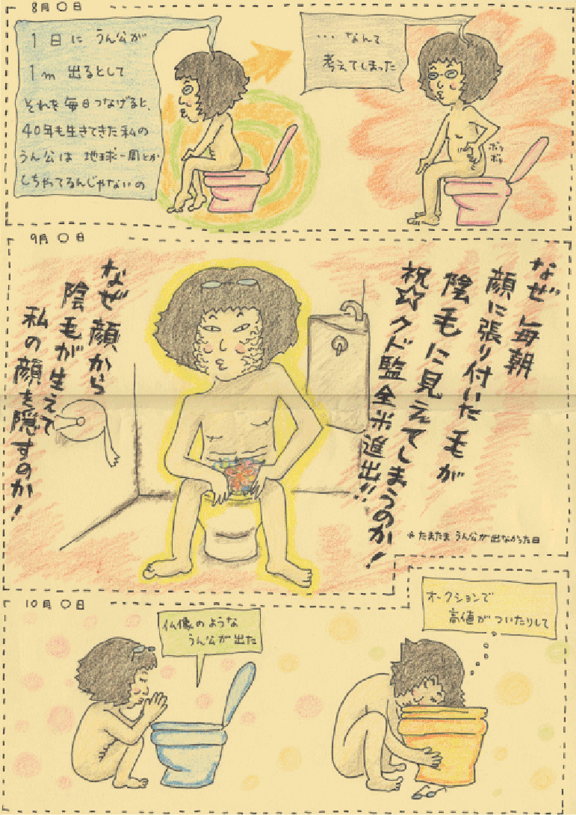 8月〇日
1日に うん公が
1m 出るとして
それを毎日つなげると、
40年も生きてきた私の
うん公は 地球一周とか
しちゃてるんじゃないの
…なんて
考えてしまった
ボリ
ボリ
9月〇日
なぜ毎朝
顔に張り付いた毛が
陰毛に見えてしまうのか!
祝☆クド監全米進出!!
なぜ顔から
陰毛が生えて
私の顔を隠すのか!
*たまたま うん公が出なかった日
10月〇日
仏像のような
うん公が出た
オークションで
高値がついたりして